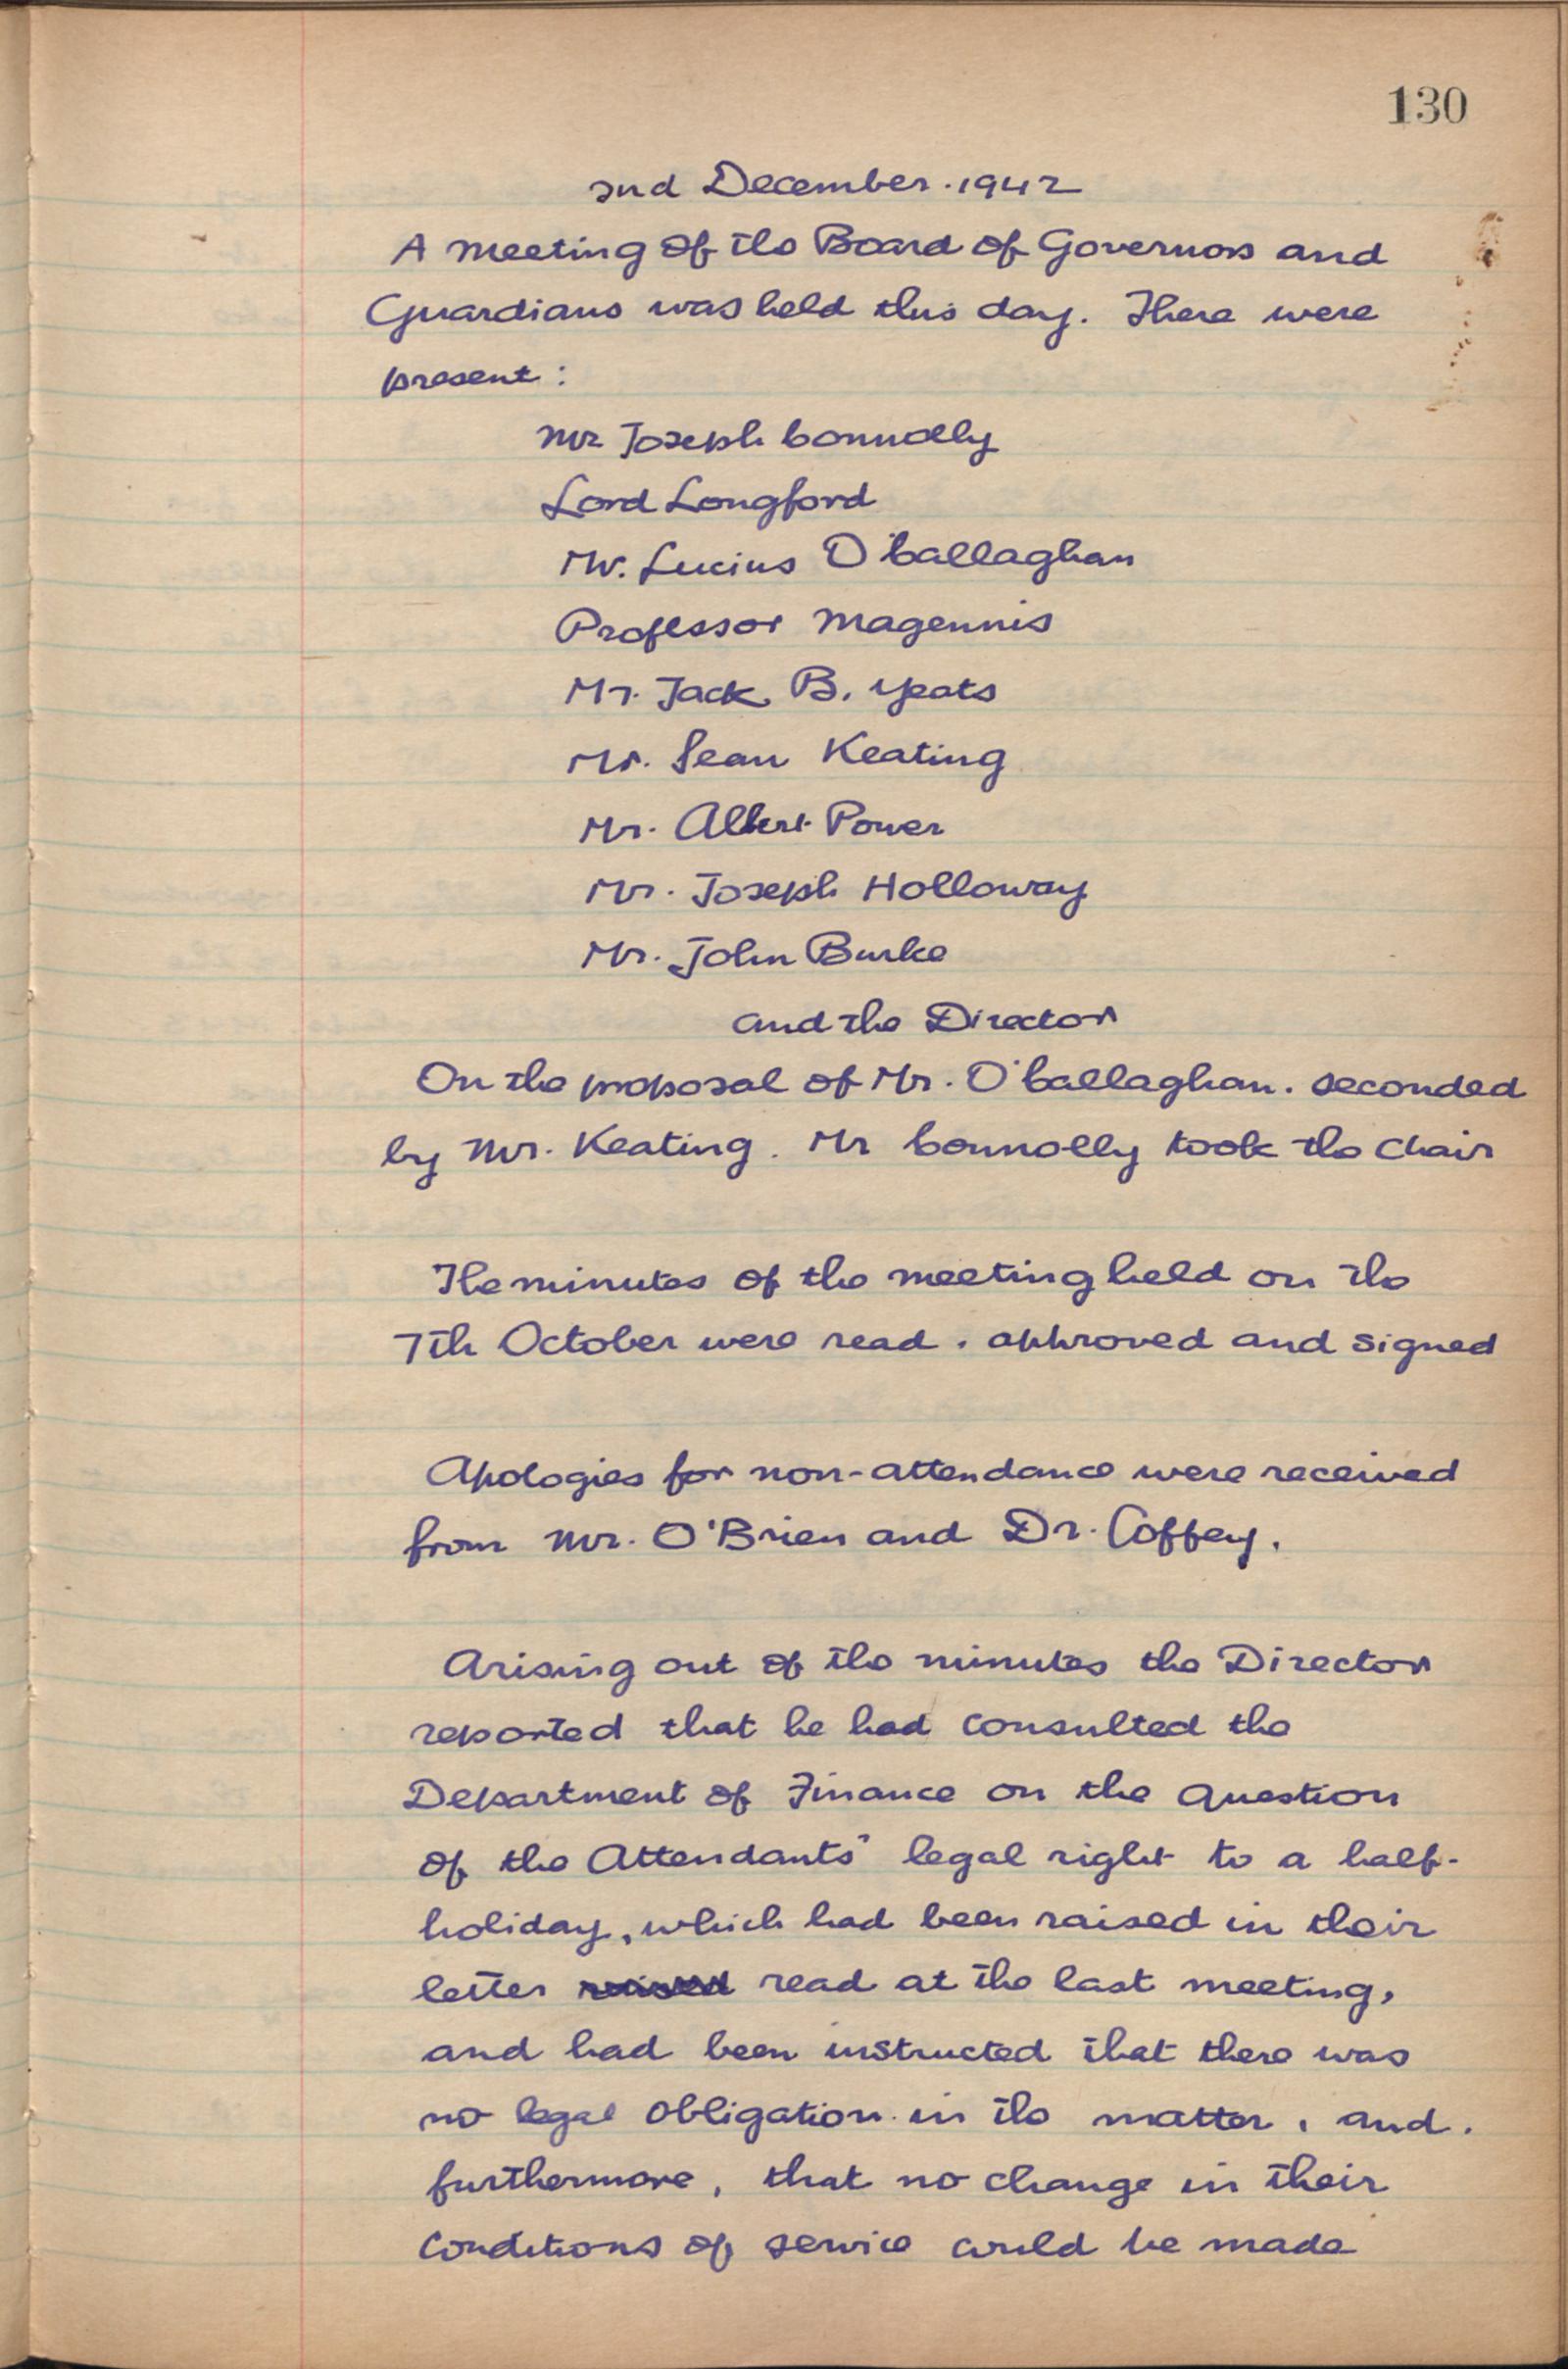 130
2nd December. 1942
A meeting of the Board of Governors and
Guardians was held this day. There were
present:
Mr Joseph Connolly
Lord Longford
Mr. Lucius O'Callaghan
Professor Magennis
Mr. Jack B. Yeats
Mr. Sean Keating
Mr. Albert Power
Mr. Joseph Holloway
Mr. John Burke
and the Director
On the proposal of Mr. O'Callaghan. seconded
by Mr. Keating. Mr Connolly took the Chair
The minutes of the meeting held on the
7th October were read. approved and signed
Apologies for non-attendance were received
from Mr. O'Brien and Dr. Coffey.
Arising out of the minutes the Director
reported that he had consulted the
Department of Finance on the question
of the Attendants' legal right to a half-
holiday, which had been raised in their
letter raised read at the last meeting,
and had been instructed that there was
no legal obligation in the matter, and.
furthermore, that no change in their
conditions of service could be made